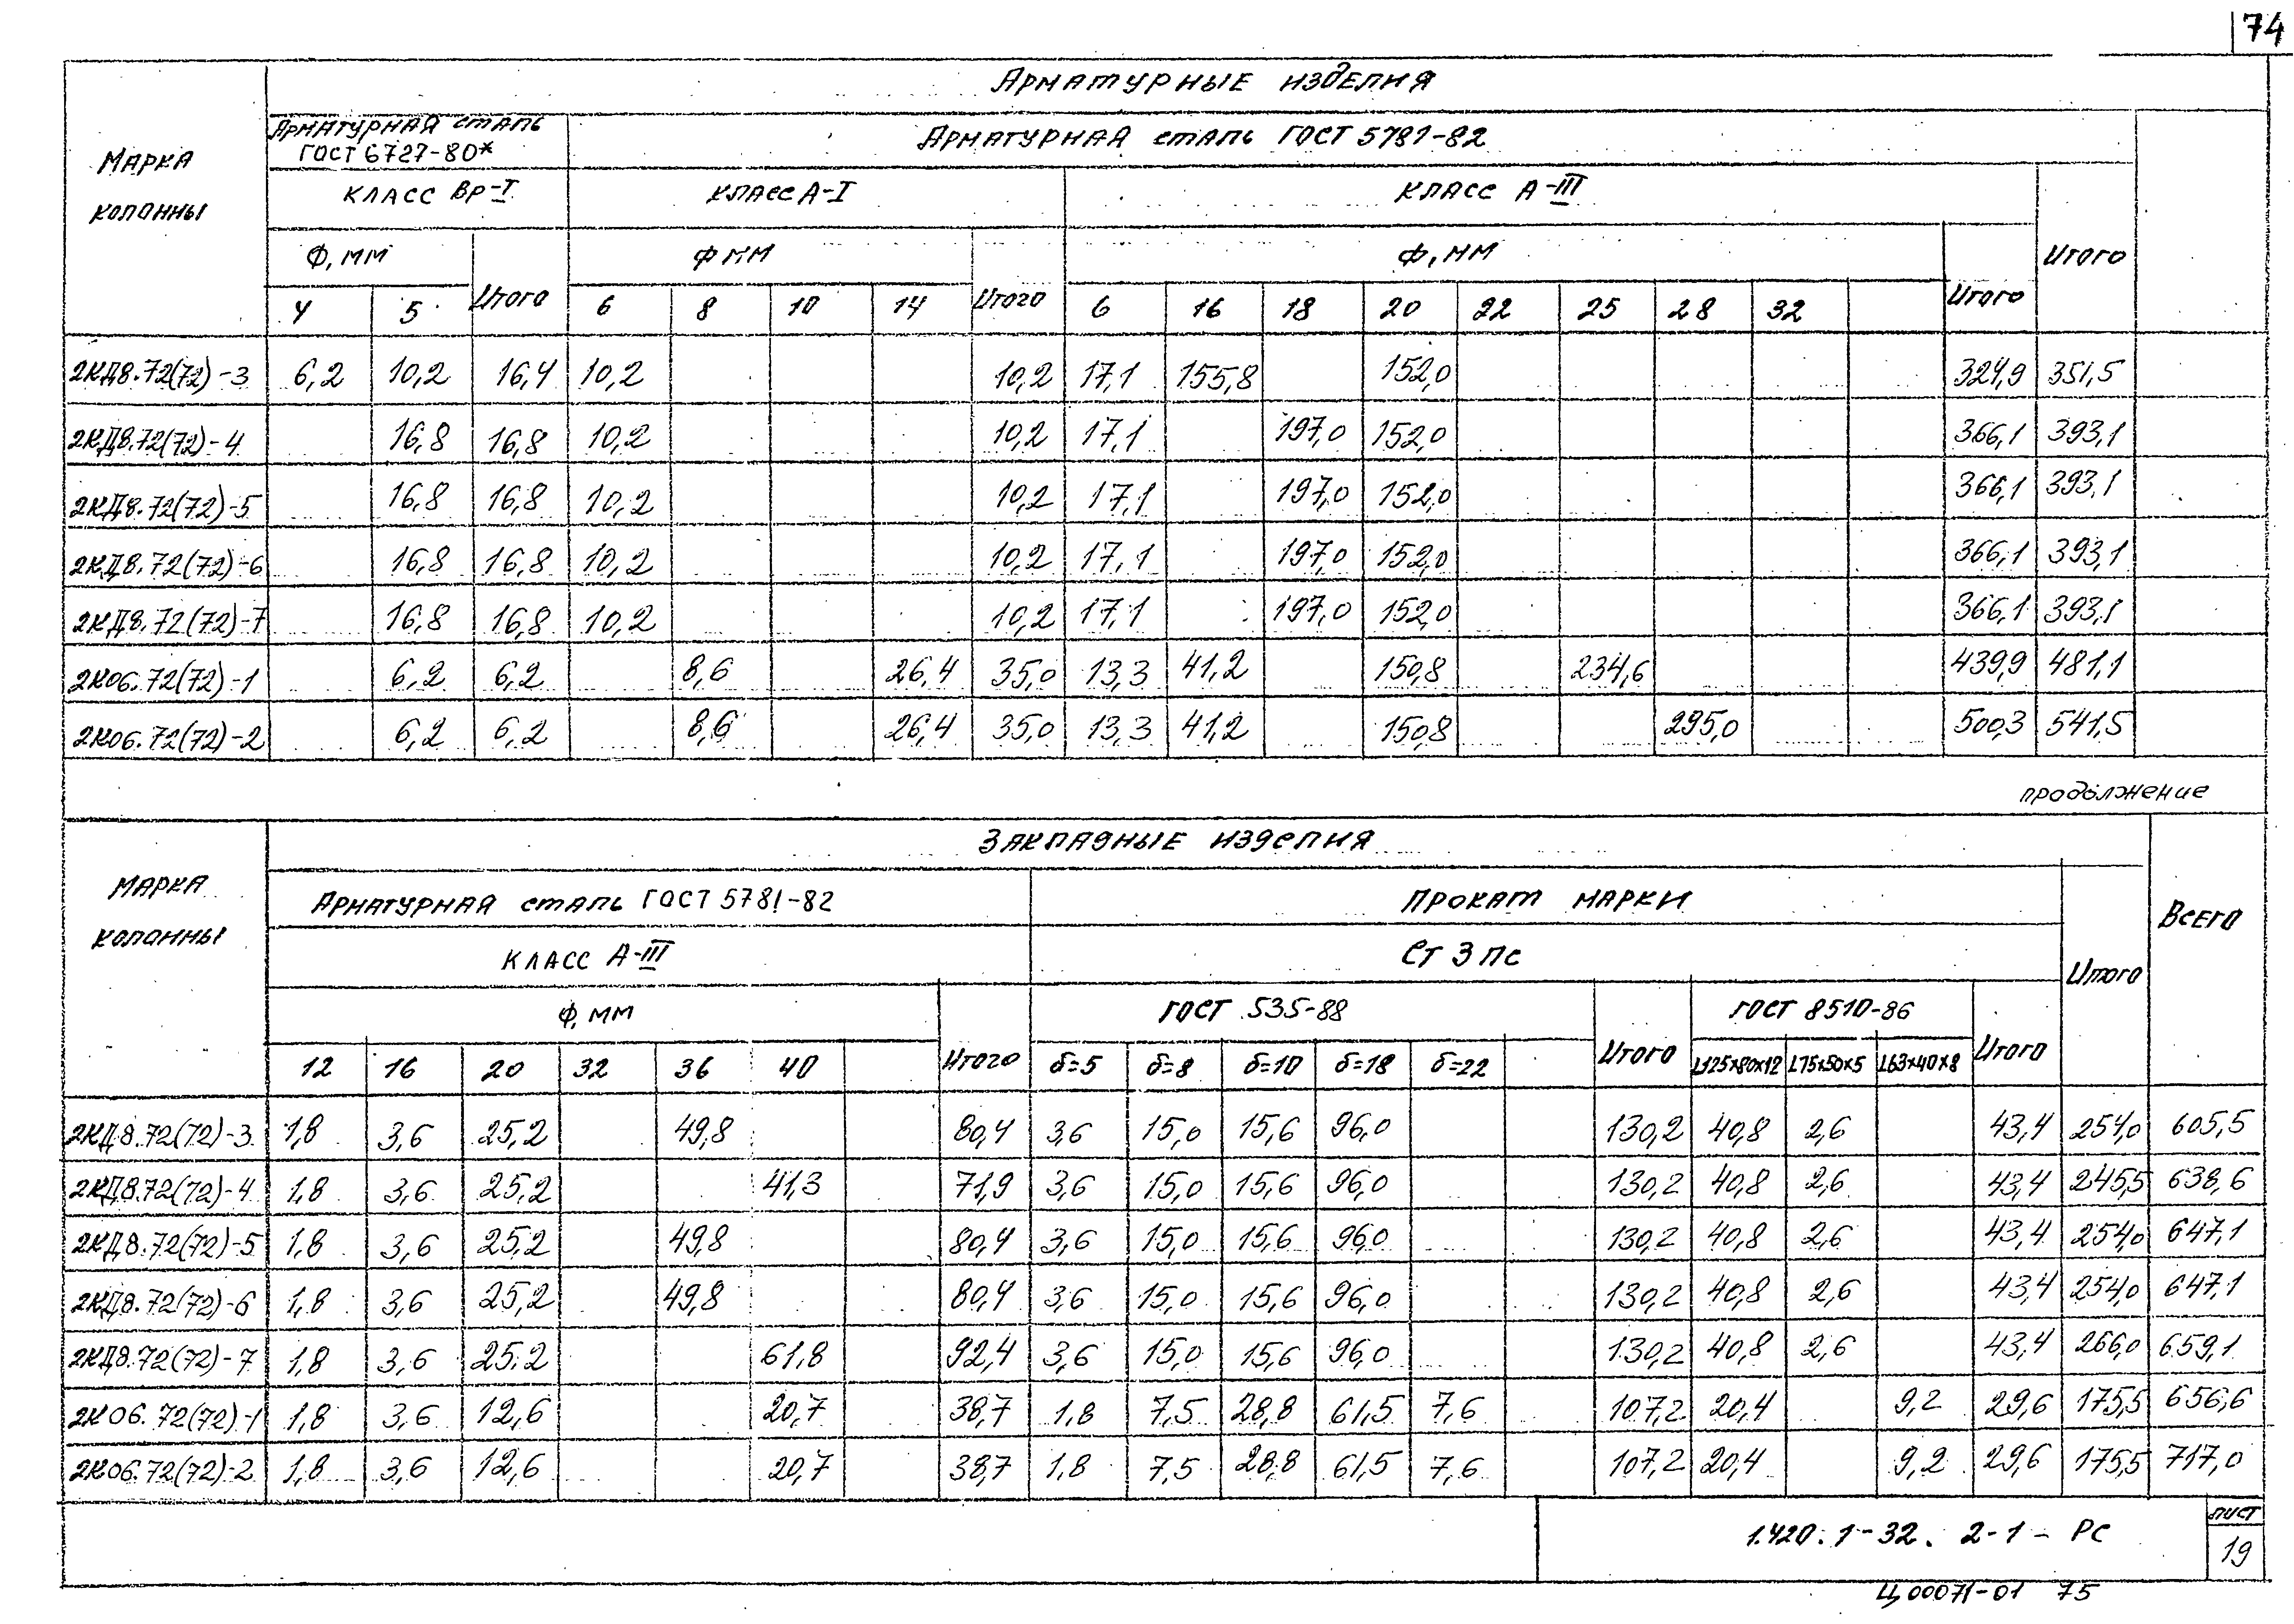 74
Арматурные изделия
Марка колонны
Арматурная сталь ГОСТ 6727-80*
Арматурная сталь ГОСТ 5781-82
Класс Вр-I
Класс А-I
Класс А-III
Итого
Ф, мм
Ф мм
Ф, мм
4 5 Итого 6 8 10 14 Итого 6 16 18 20 22 25 28 32 Итого
2КД8.72(72)-3 6,2 10,2 16,4 10,2 10,2 17,1 155,8 152,0 324,9 351,5
2КД8.72(72)-4 16,8 16,8 10,2 10,2 17,1 197,0 152,0 366,1 393,1
2КД8.72(72)-5 16,8 16,8 10,2 10,2 17,1 197,0 152,0 366,1 393,1
2КД8.72(72)-6 16,8 16,8 10,2 10,2 17,1 197,0 152,0 366,1 393,1
2КД8.72(72)-7 16,8 16,8 10,2 10,2 17,1 197,0 152,0 366,1 393,1
2К06.72(72)-1 6,2 6,2 8,6 26,4 35,0 13,3 41,2 150,8 234,6 439,9 481,1
2К06.72(72)-2 6,2 6,2 8,6 26,4 35,0 13,3 41,2 150,8 295,0 500,3 541,5
продолжение
Закладные изделия
Марка колонны
Арматурная сталь ГОСТ 5781-82
Прокат марки
Всего
Класс А-III
Ст 3 пс
Итого
Ф, мм
ГОСТ 535-88
ГОСТ 8510-86
12 16 20 32 36 40 Итого δ=5 δ=8 δ=10 δ=18 δ=22 Итого L125х80х12 L75х50х5 L63х40х8 Итого
2КД8.72(72)-3 1,8 3,6 25,2 49,8 80,4 3,6 15,0 15,6 96,0 130,2 40,8 2,6 43,4 254,0 605,5
2КД8.72(72)-4 1,8 3,6 25,2 41,3 71,9 3,6 15,0 15,6 96,0 130,2 40,8 2,6 43,4 245,5 638,6
2КД8.72(72)-5 1,8 3,6 25,2 49,8 80,4 3,6 15,0 15,6 96,0 130,2 40,8 2,6 43,4 254,0 647,1
2КД8.72(72)-6 1,8 3,6 25,2 49,8 80,4 3,6 15,0 15,6 96,0 130,2 40,8 2,6 43,4 254,0 647,1
2КД8.72(72)-7 1,8 3,6 25,2 61,8 92,4 3,6 15,0 15,6 96,0 130,2 40,8 2,6 43,4 266,0 659,1
2К06.72(72)-1 1,8 3,6 12,6 20,7 38,7 1,8 7,5 28,8 61,5 7,6 107,2 20,4 9,2 29,6 175,5 656,6
2К06.72(72)-2 1,8 3,6 12,6 20,7 38,7 1,8 7,5 28,8 61,5 7,6 107,2 20,4 9,2 29,6 175,5 717,0
1.420.1-32. 2-1-РС
Лист
19
Ц00071-01 75